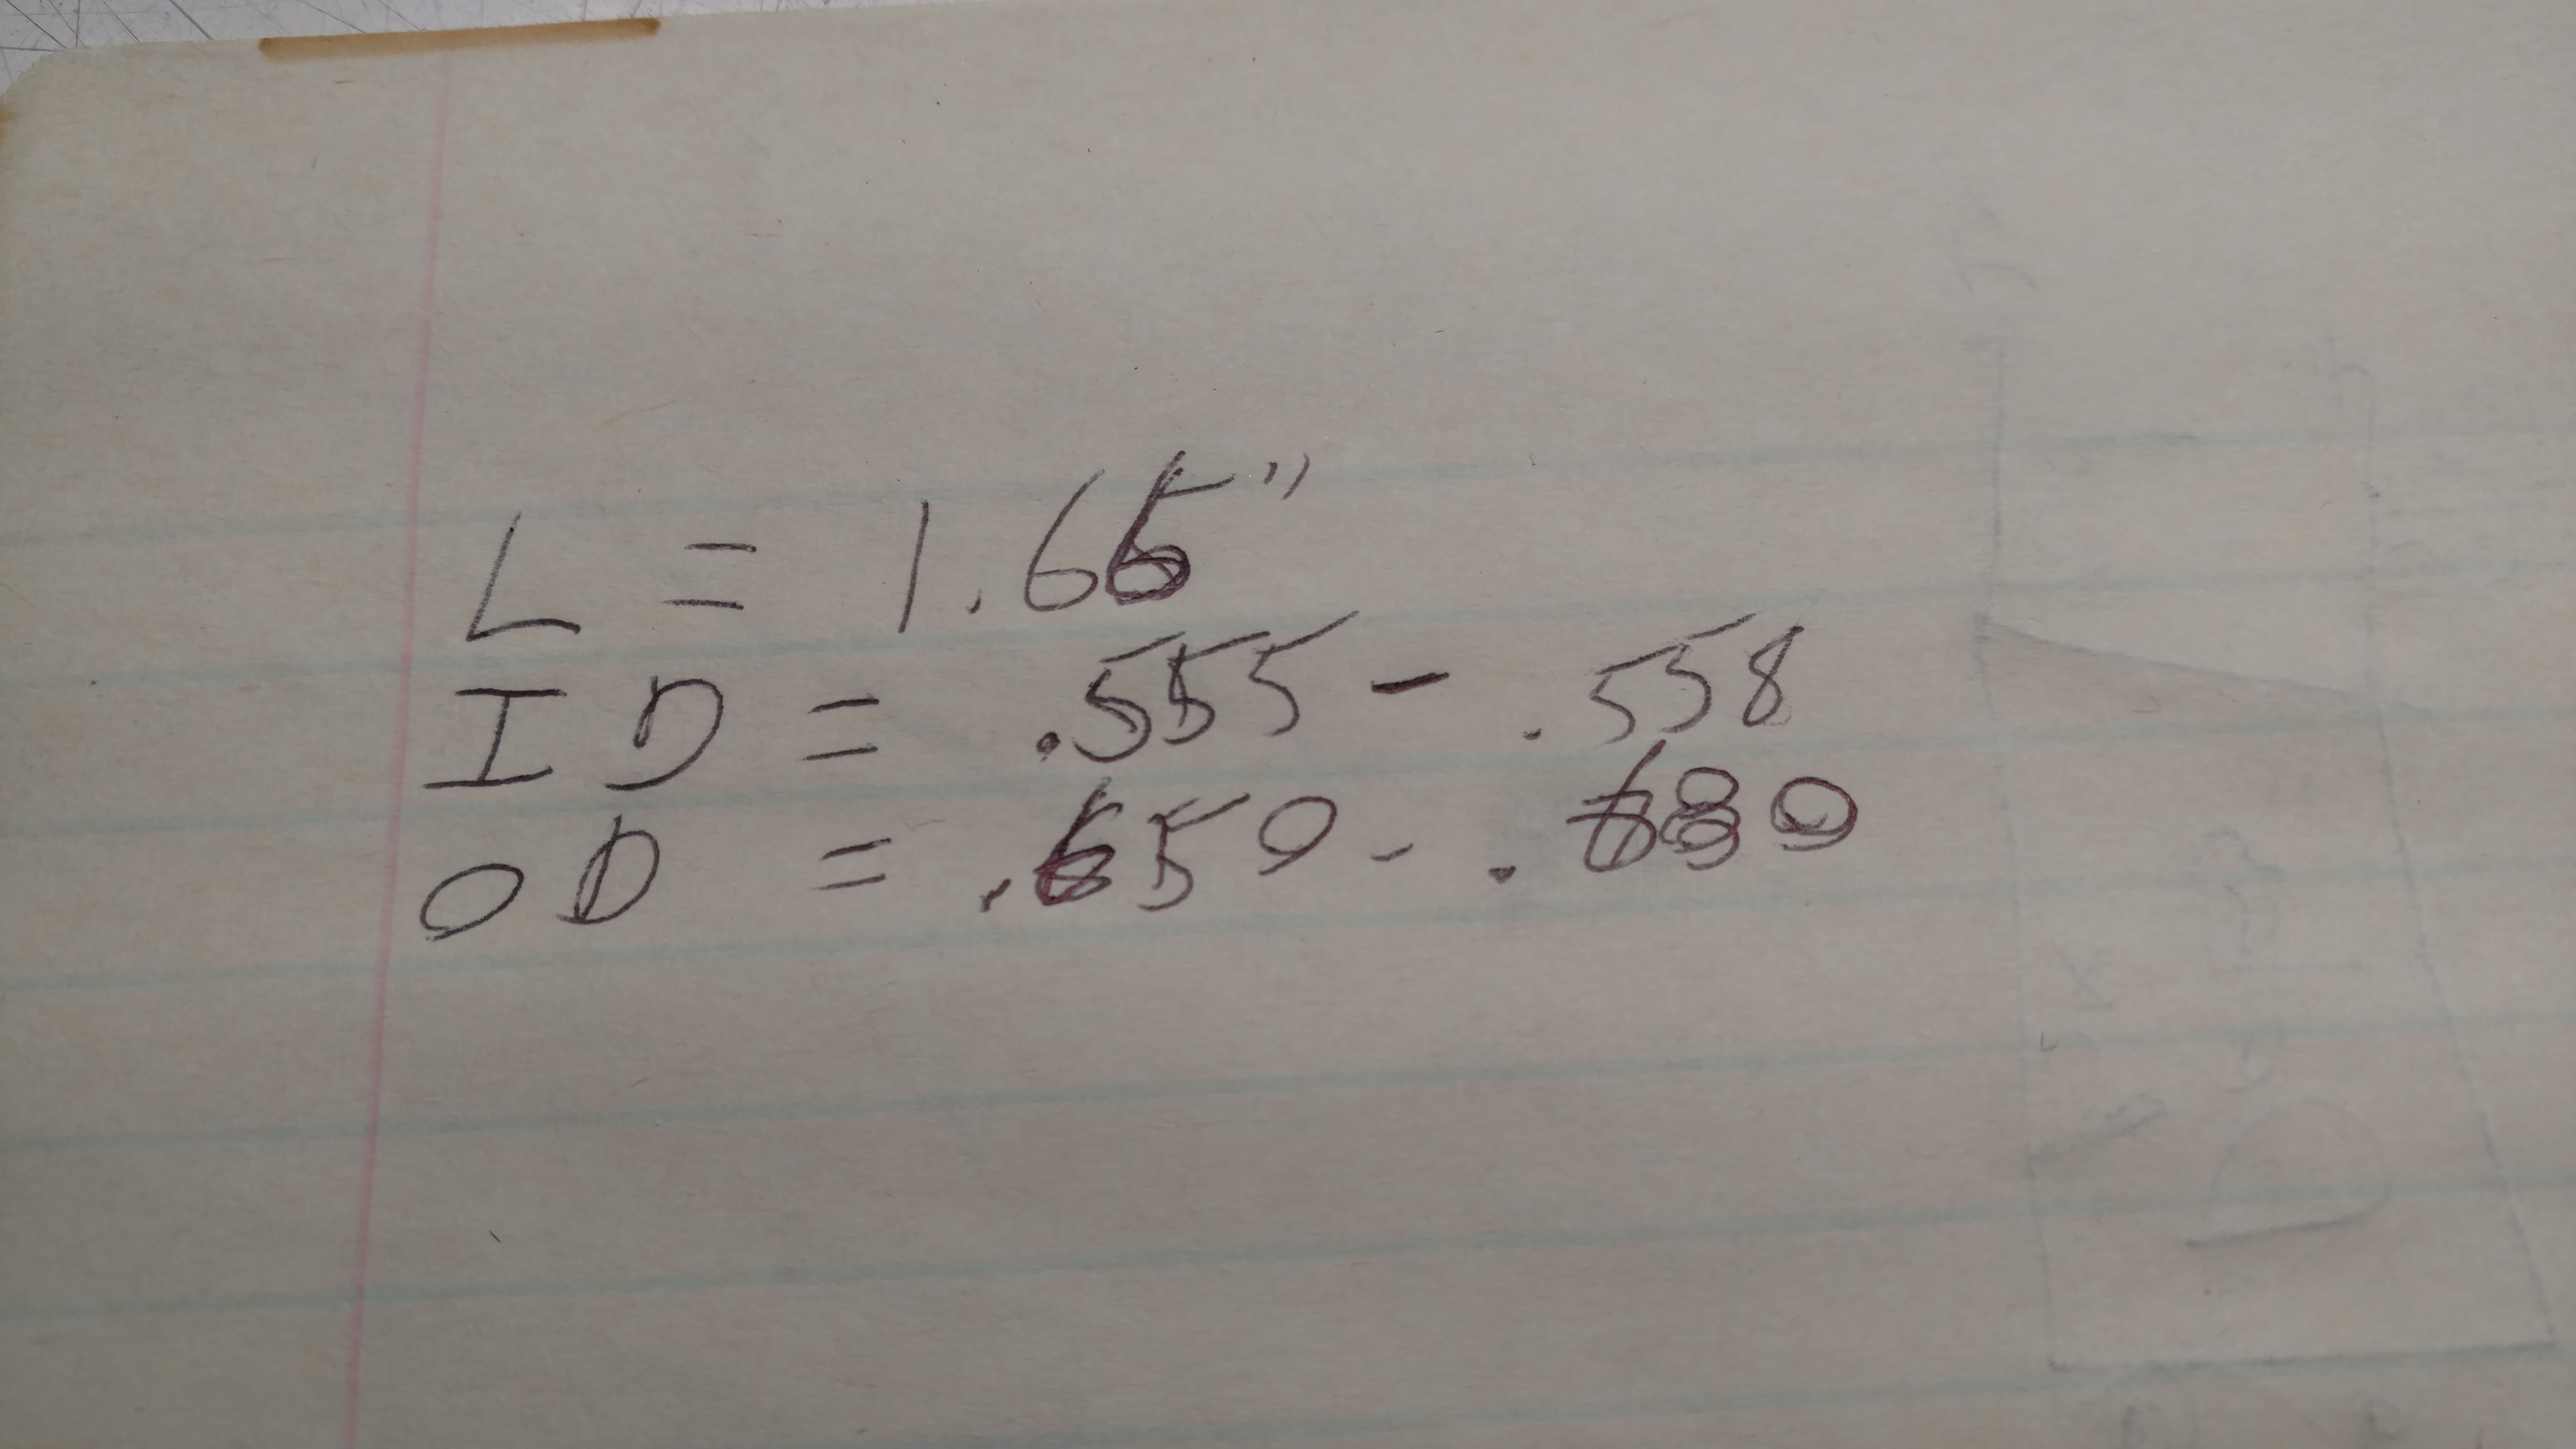 L = 1.65"
ID = .555 - .558
OD = .650 - .680